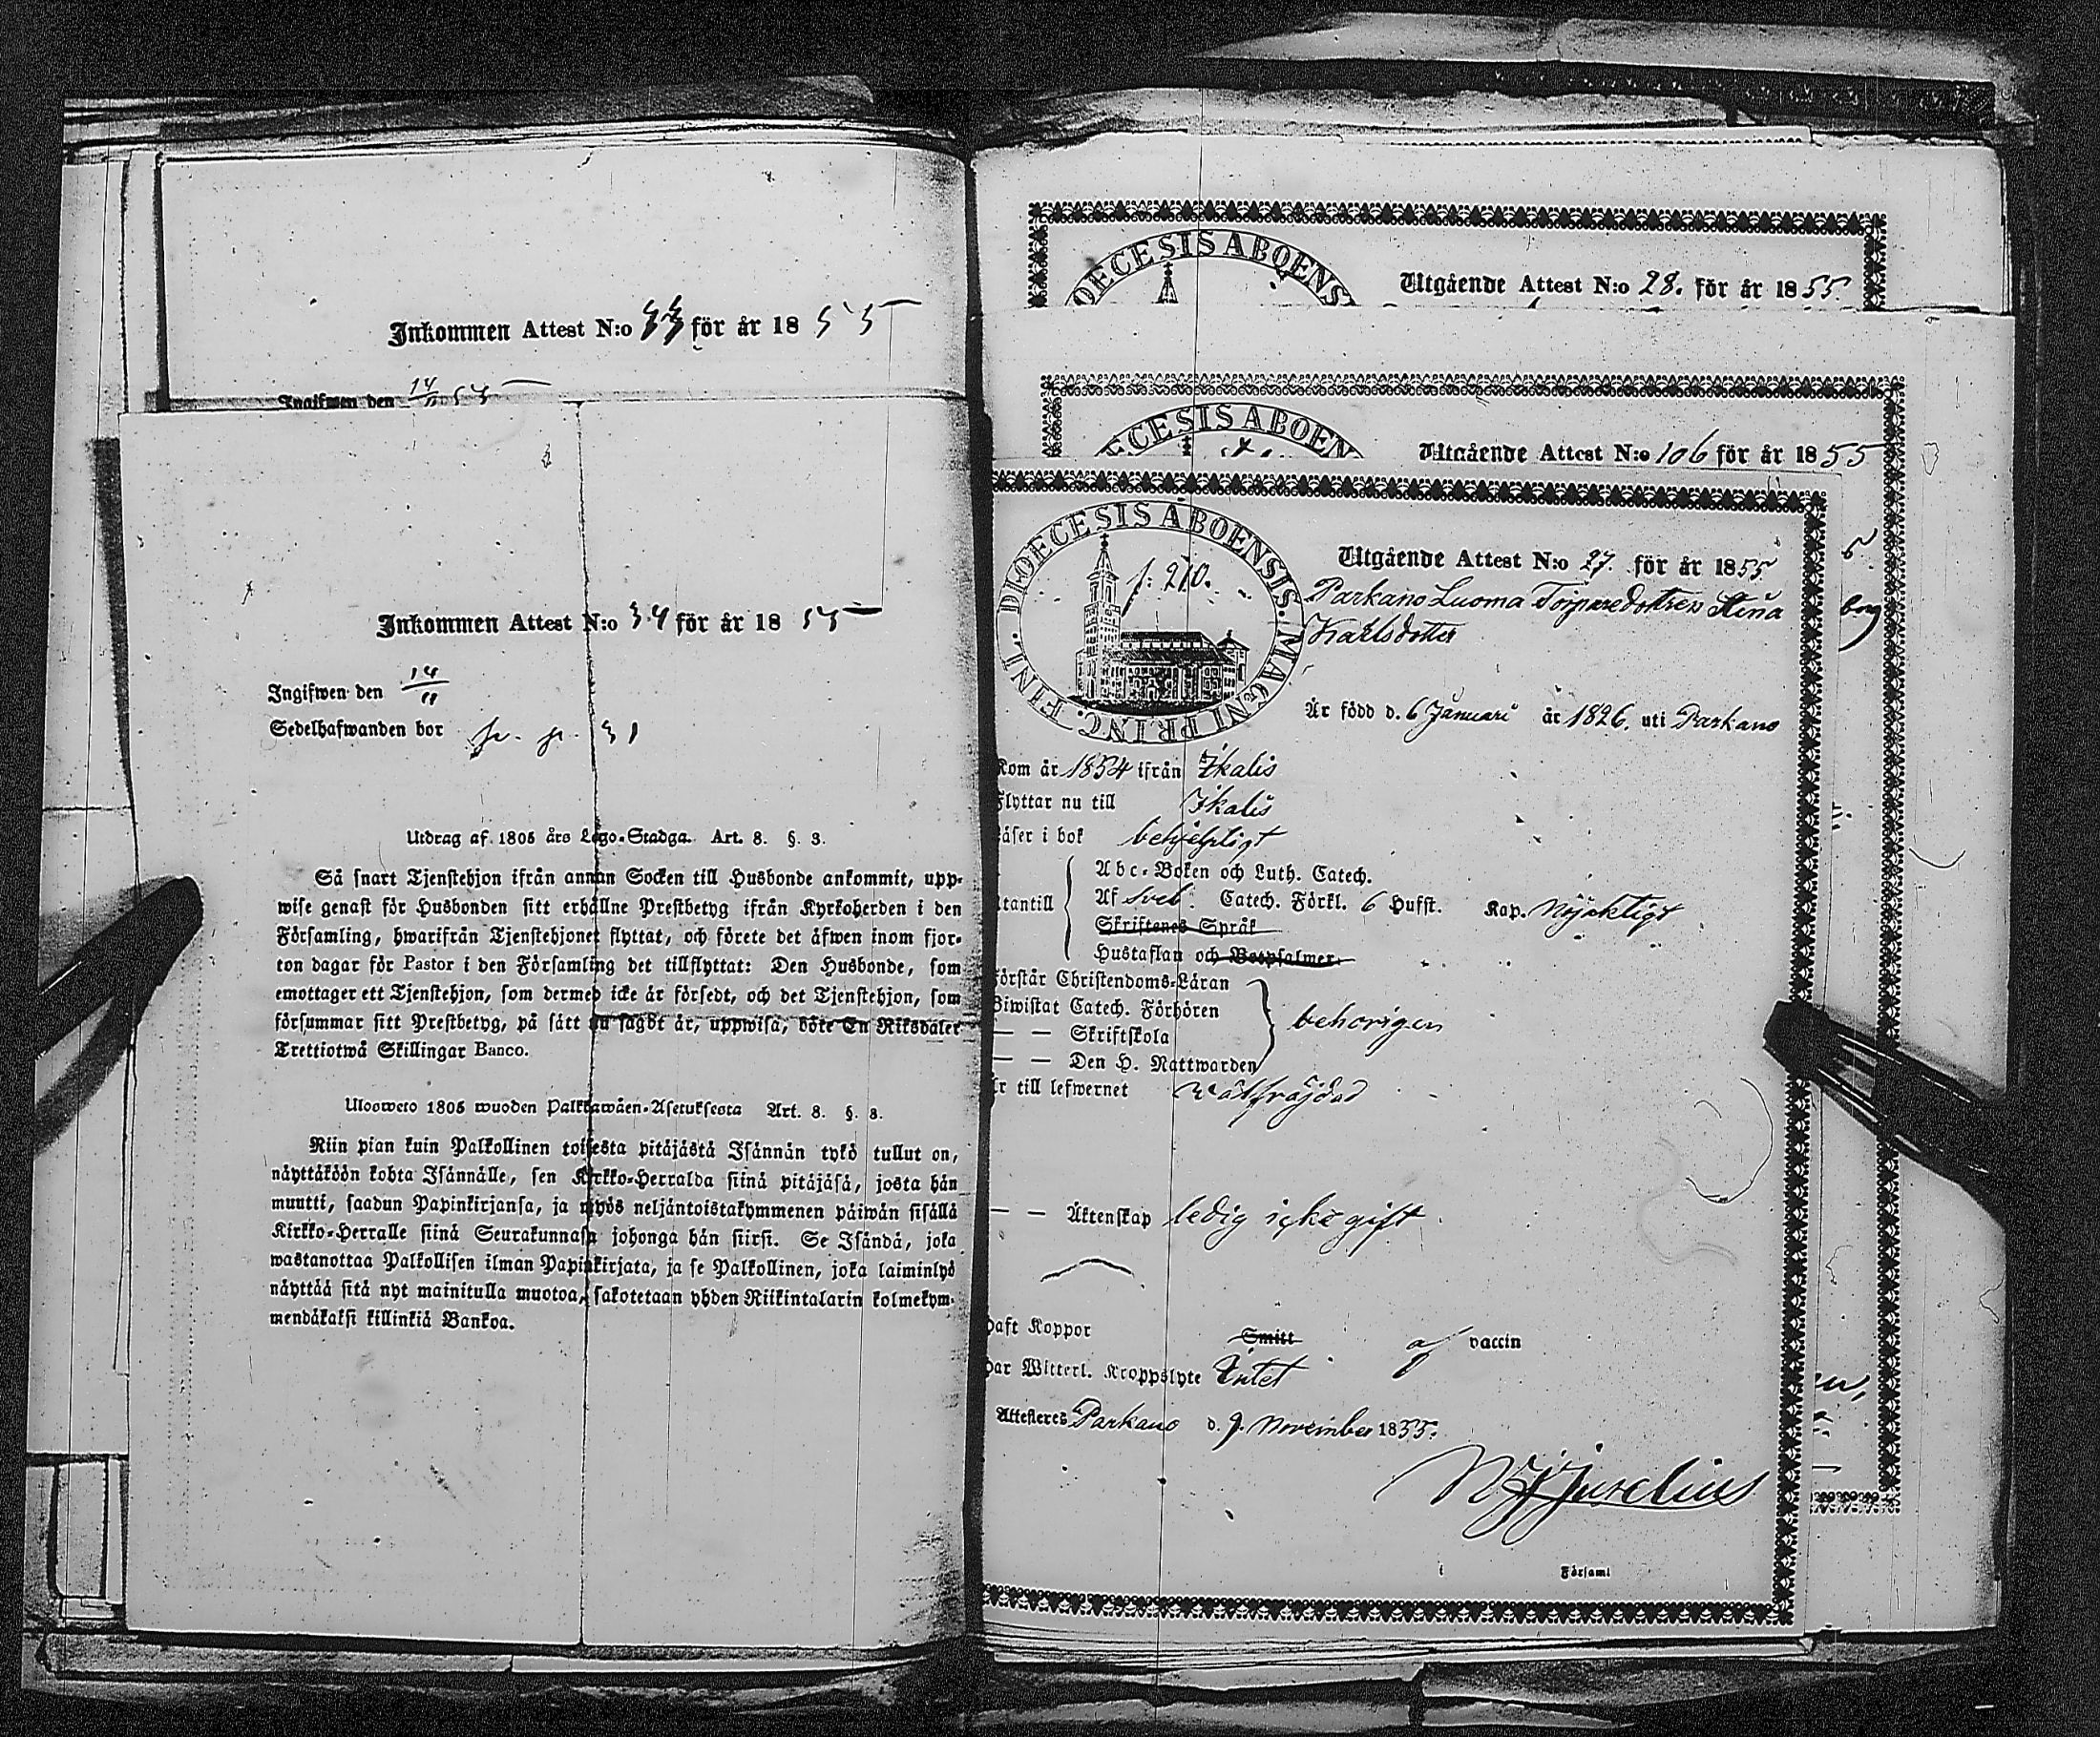 Inkommen Attest N:o 33 för år 1855
Ingifwen den 14/11 55
Inkommen Attest N:o 34 för år 1855
Ingifwen den 14/11
Sedelhafwanden bor p. 31
Utdrag af 1805 års Lego-Stadga. Art. 8. §. 3.
Så snart Tjenstehjon ifrån annan Socken till Husbonde ankommit, upp-
wise genast för Husbonden sitt erhållne Prestbetyg ifrån Kyrkoherden i den
Församling, hwarifrån Tjenstehjonet flyttat, och förete det äfwen inom fjor-
ton dagar för Pastor i den Församling det tillflyttat: Den Husbonde, som
emottager ett Tjenstehjon, som dermed icke är försedt, och det Tjenstehjon, som
försummar sitt Prestbetyg, på sätt nu sagdt är, uppwisa, böte En Riksdaler
Trettiotwå Skillingar Banco.
Ulosweto 1805 wuoden Palkkawäen-Asetuksesta Art. 8. §. 3.
Niin pian kuin Palkollinen toisesta pitäjästä Isännän tykö tullut on,
näyttäköön kohta Isännälle, sen Kirkko-Herralda siinä pitäjäsä, josta hän
muutti, saadun Papinkirjansa, ja myös neljäntoistakymmenen päiwän sisällä
Kirkko-Herralle siinä Seurakunnasa johonga hän siirsi. Se Isändä, joka
wastanottaa Palkollisen ilman Papinkirjata, ja se Palkollinen, joka laiminlyö
näyttää sitä nyt mainitulla muotoa, sakotetaan yhden Riikintalarin kolmekym-
mendäkaksi killinkiä Bankoa.
DIOECESIS ABOENS
Utgående Attest N:o 28. för år 1855.
ECESIS ABOEN
Utgående Attest N:o 106 för år 1855
DIOECESIS ABOENSIS. MAGNI PRINC. FINL.
f: 210.
Utgående Attest N:o 27. för år 1855
Parkano Luoma Torparedottren Stina
Karlsdotter
Är född d. 6 Januari år 1826. uti Parkano
Kom år 1854 ifrån Ikalis
Flyttar nu till Ikalis
Läser i bok behjelpligt
Abc-Boken och Luth. Catech.
tantill Af Sveb. Catech. Förkl. 6 Hufst. Kap. Nöjaktigt
Skriftenes Språk
Hustaflan och Botpsalmer.
Förstår Christendoms-Läran
Biwistat Catech. Förhören
— — Skriftskola
behörigen
— — Den H. Nattwarden
Är till lefwernet wälfrägdad
— — Äktenskap ledig icke gift
Haft Koppor Smitt af vaccin
Har Witterl. Kroppslyte Intet
Attesteres Parkano d. 9. November 1855.
i Församl